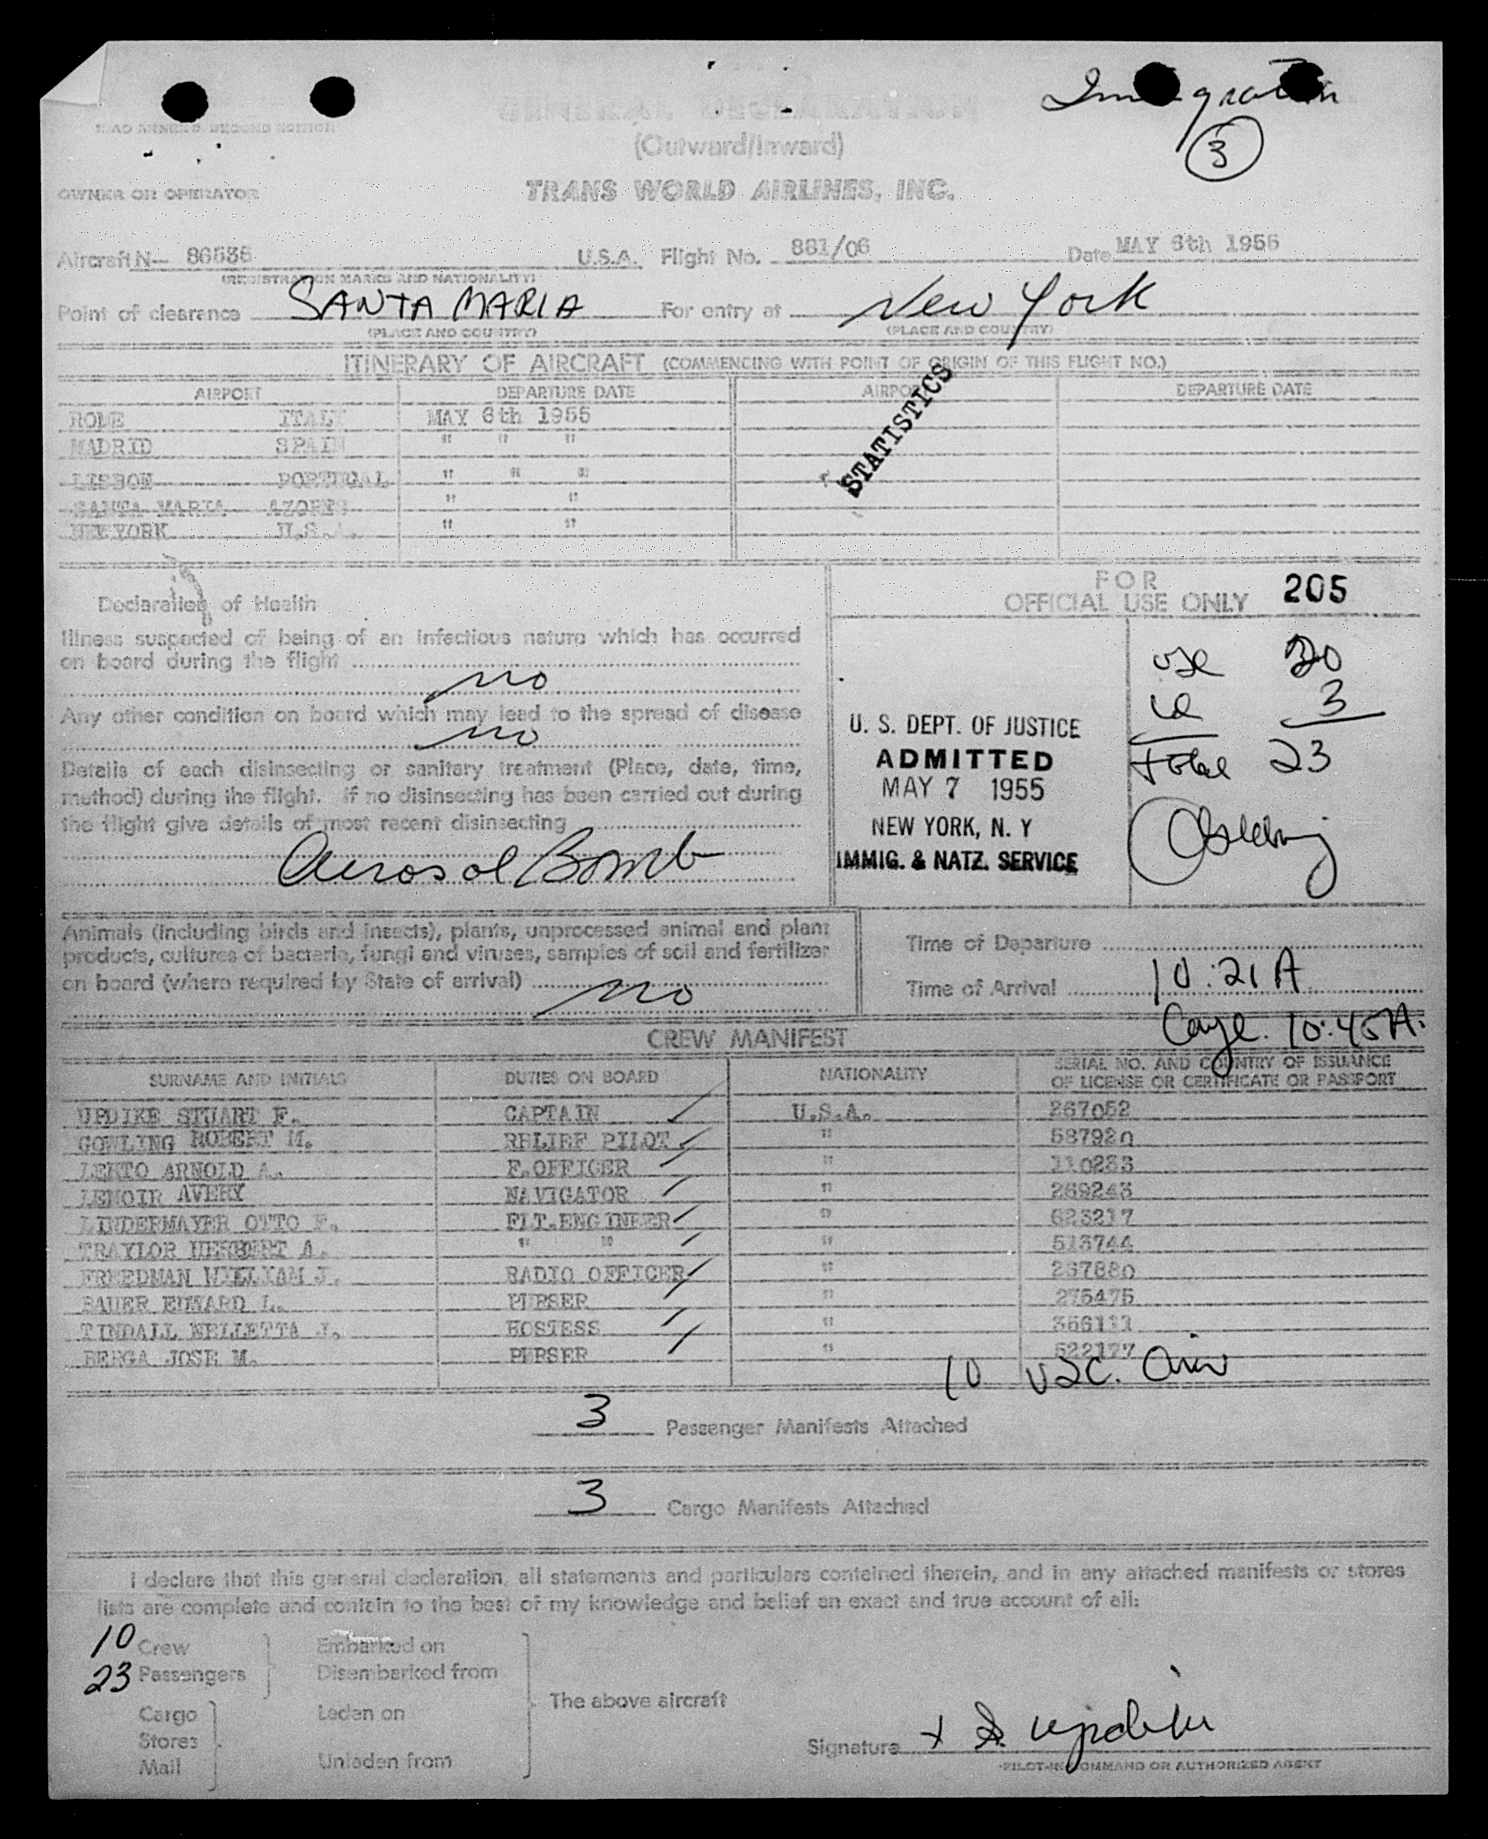 Immigration
3
GENERAL DECLARATION
(Outward/Inward)
OWNER OR OPERATOR TRANS WORLD AIRLINES, INC.
Aircraft N- 86536 U.S.A. Flight No. 881/06 Date MAY 6th 1955
(REGISTRATION MARKS AND NATIONALITY)
Point of clearance SANTA MARIA For entry at New York
(PLACE AND COUNTRY) (PLACE AND COUNTRY)
ITINERARY OF AIRCRAFT (COMMENCING WITH POINT OF ORIGIN OF THIS FLIGHT NO.)
AIRPORT DEPARTURE DATE AIRPORT DEPARTURE DATE
STATISTICS
ROME ITALY MAY 6th 1955
MADRID SPAIN " " "
LISBON PORTUGAL " " "
SANTA MARIA AZORES " "
NEW YORK U.S.A. " "
FOR
OFFICIAL USE ONLY 205
Declaration of Health
Illness suspected of being of an infectious nature which has occurred
on board during the flight
no
Any other condition on board which may lead to the spread of disease
no
Details of each disinsecting or sanitary treatment (Place, date, time,
method) during the flight. If no disinsecting has been carried out during
the flight give details of most recent disinsecting
Aerosol Bomb
usc 20
3
Total 23
U. S. DEPT. OF JUSTICE
ADMITTED
MAY 7 1955
NEW YORK, N. Y
IMMIG. & NATZ. SERVICE
Animals (including birds and insects), plants, unprocessed animal and plant
products, cultures of bacteria, fungi and viruses, samples of soil and fertilizer
on board (where required by State of arrival)
no
Time of Departure
Time of Arrival 10:21 A
10:45 A.
CREW MANIFEST
SURNAME AND INITIALS DUTIES ON BOARD NATIONALITY SERIAL NO. AND COUNTRY OF ISSUANCE
OF LICENSE OR CERTIFICATE OR PASSPORT
UPDIKE STUART F. CAPTAIN U.S.A. 267052
GOWLING ROBERT M. RELIEF PILOT " 587920
LEHTO ARNOLD A. F.OFFICER " 110283
LEMOIR AVERY NAVIGATOR " 269243
LINDERMAYER OTTO F. FLT.ENGINEER " 623217
TRAYLOR HERBERT A. " " " 513744
FREEDMAN WILLIAM J. RADIO OFFICER " 267880
BAUER EDWARD L. PURSER " 275475
TINDALL NELLETTA J. HOSTESS " 366111
BERGA JOSE M. PURSER " 522177
10 USC.
3 Passenger Manifests Attached
3 Cargo Manifests Attached
I declare that this general declaration, all statements and particulars contained therein, and in any attached manifests or stores
lists are complete and contain to the best of my knowledge and belief an exact and true account of all:
10 Crew Embarked on
23 Passengers Disembarked from
The above aircraft
Cargo Laden on
Stores
Mail Unladen from
Signature x S. Updike
PILOT-IN-COMMAND OR AUTHORIZED AGENT